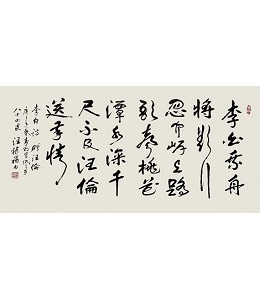 李白乘舟
將欲行
忽闻岸上踏
歌聲桃花
潭水深千
尺不及汪倫
送我情
李白詩 贈汪倫